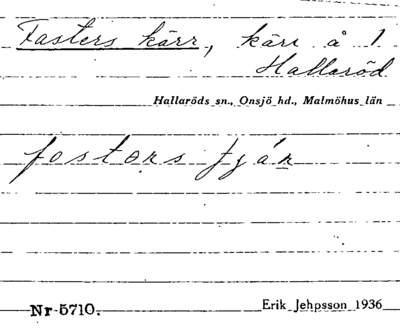 Fasters kärr, kärr å 1
Hallaröd
Hallaröds sn., Onsjö hd., Malmöhus län
fostors
Nr 5710.
Erik Jehpsson 1936